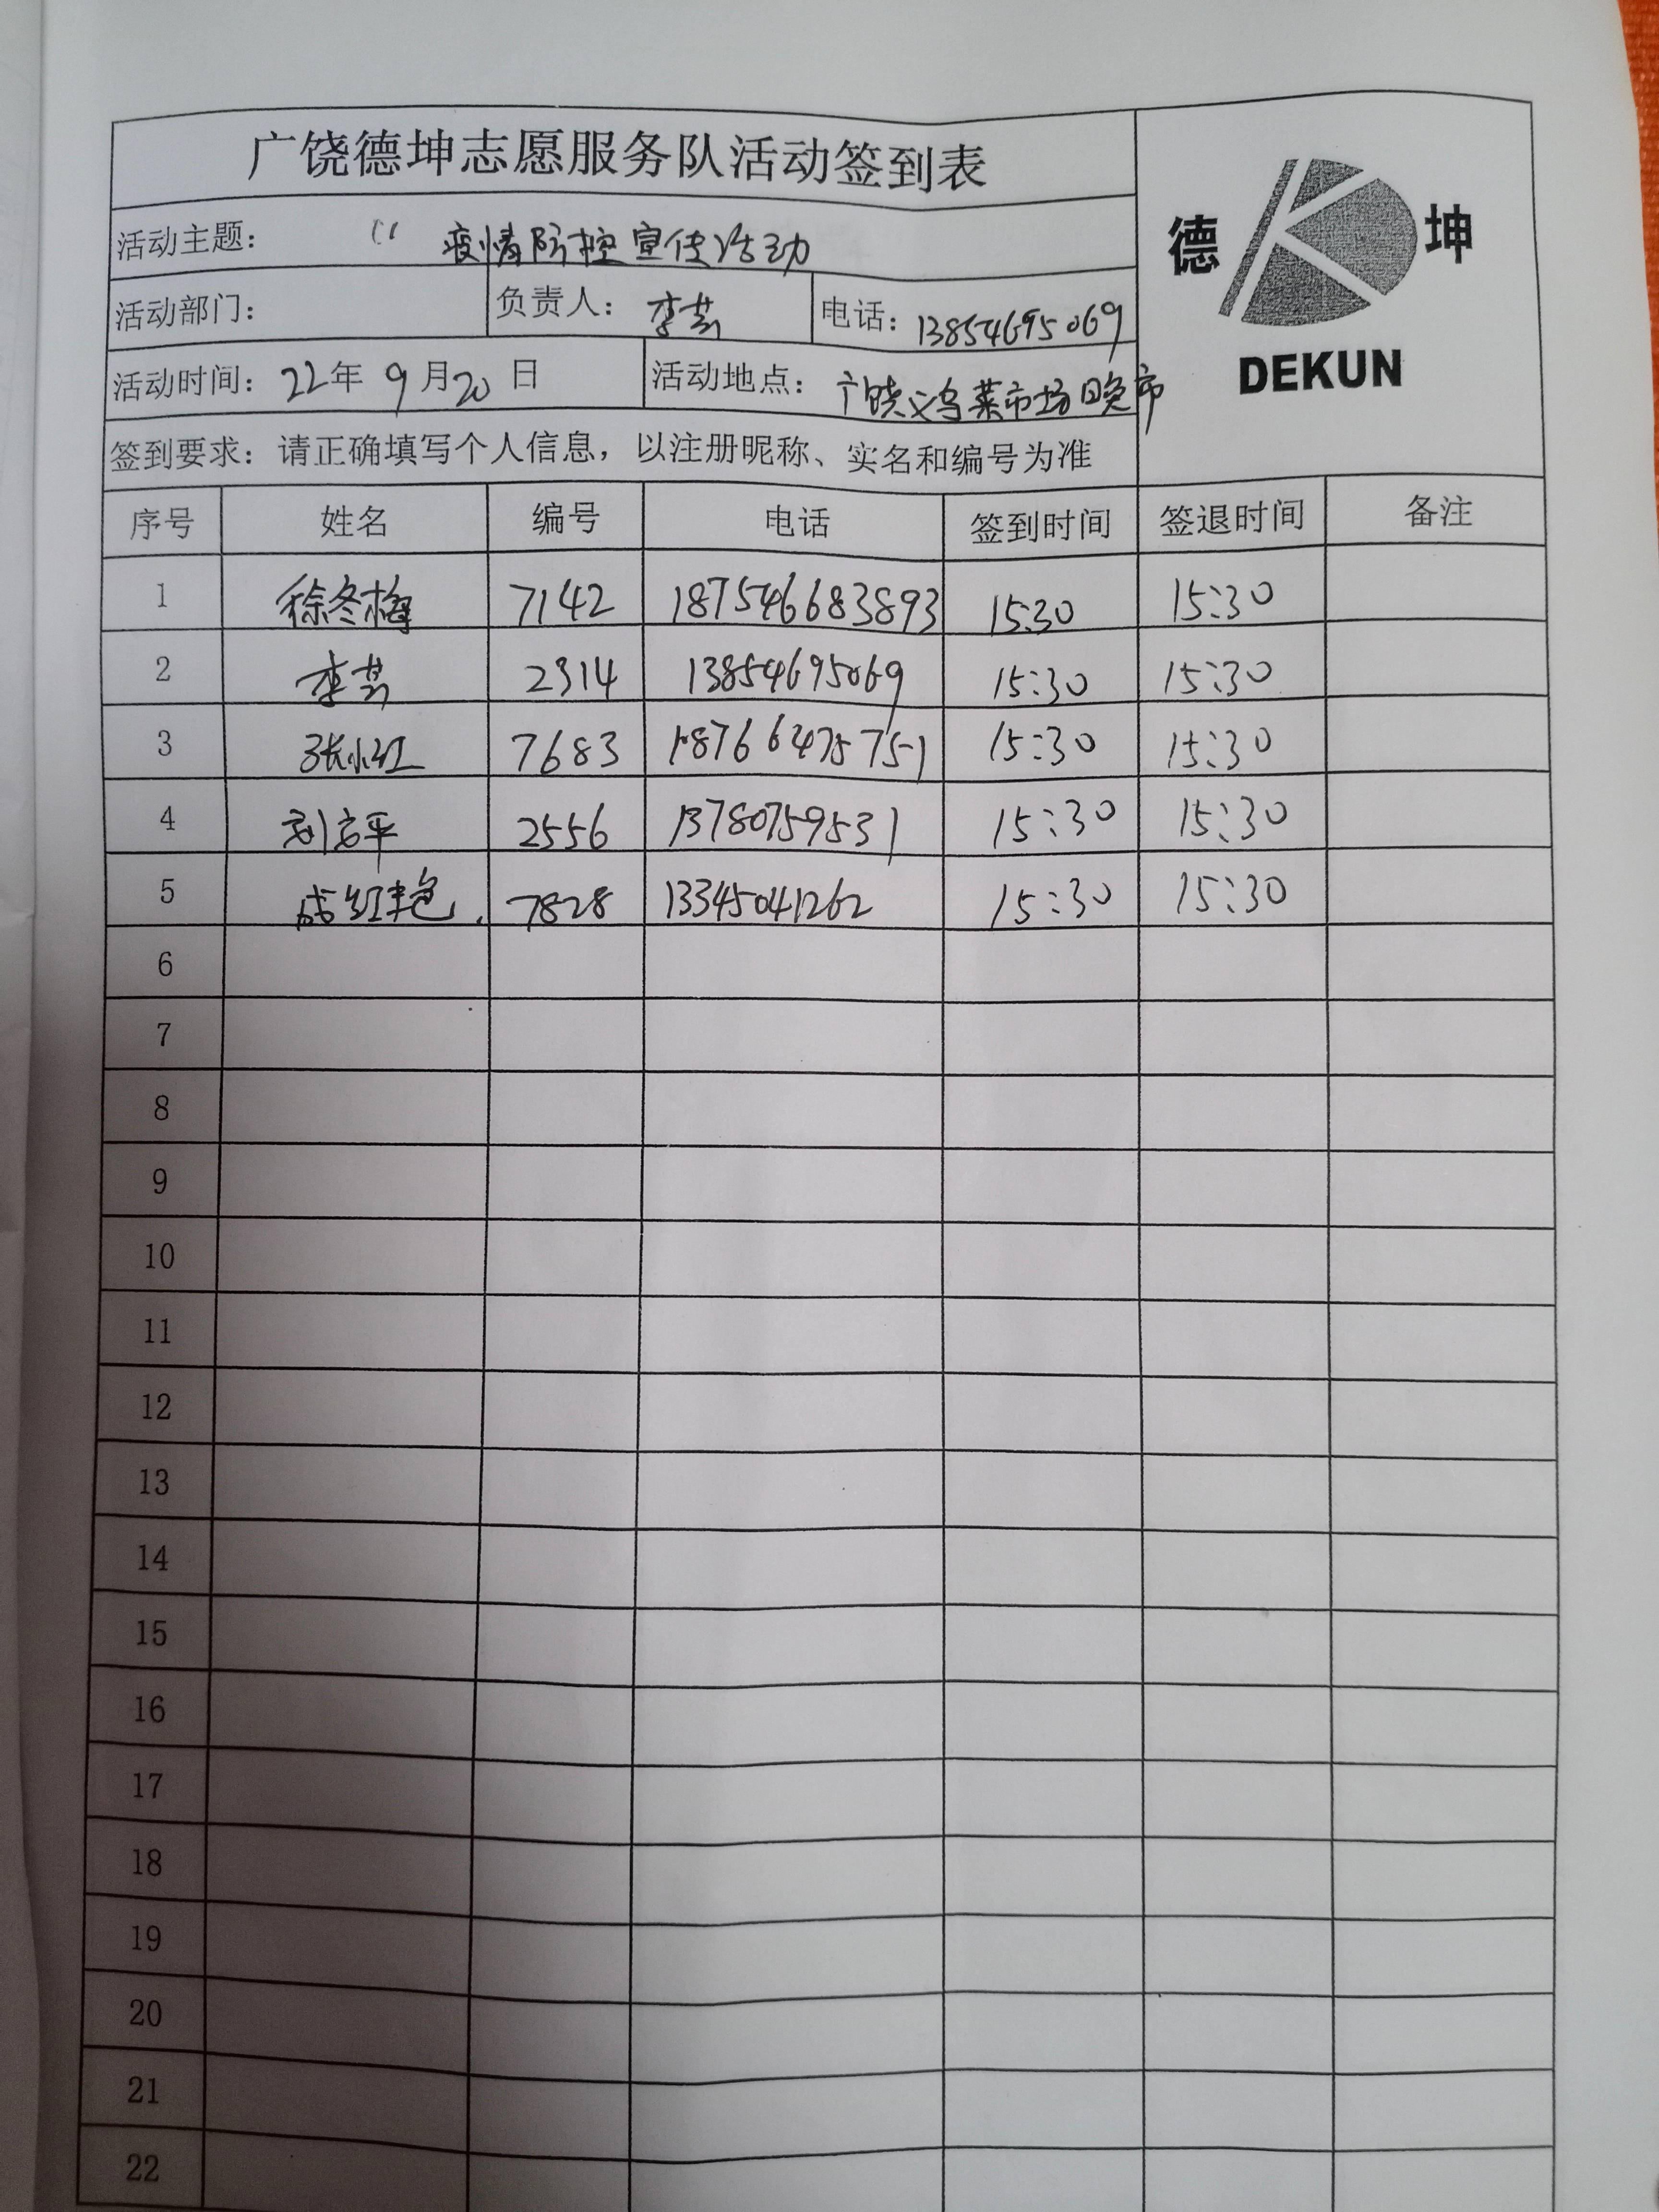 广饶德坤志愿服务队活动签到表
德 坤
DEKUN
活动主题： 疫情防控宣传活动
活动部门： 负责人：李芸 电话：13854695069
活动时间：22年 9月20日 活动地点：广饶义乌菜市场晚市
签到要求：请正确填写个人信息，以注册昵称、实名和编号为准
序号 姓名 编号 电话 签到时间 签退时间 备注
1 徐冬梅 7142 187546683893 15:30 15:30
2 李芸 2314 13854695069 15:30 15:30
3 张小红 7683 18766475751 15:30 15:30
4 刘方平 2556 13780759531 15:30 15:30
5 成红艳 7828 13345041262 15:30 15:30
6
7
8
9
10
11
12
13
14
15
16
17
18
19
20
21
22